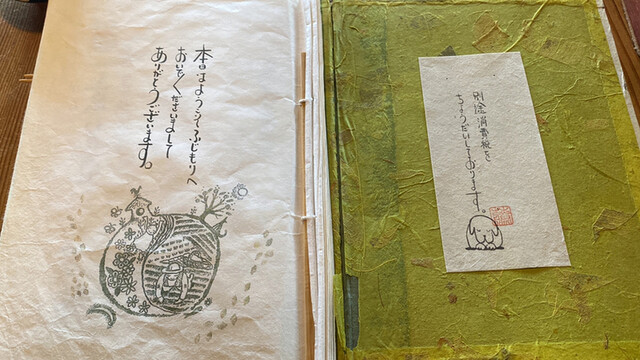 本日はようこそふじもりへ
おいでくださいまして
ありがとうございます。
別途消費税を
ちょうだいしております。